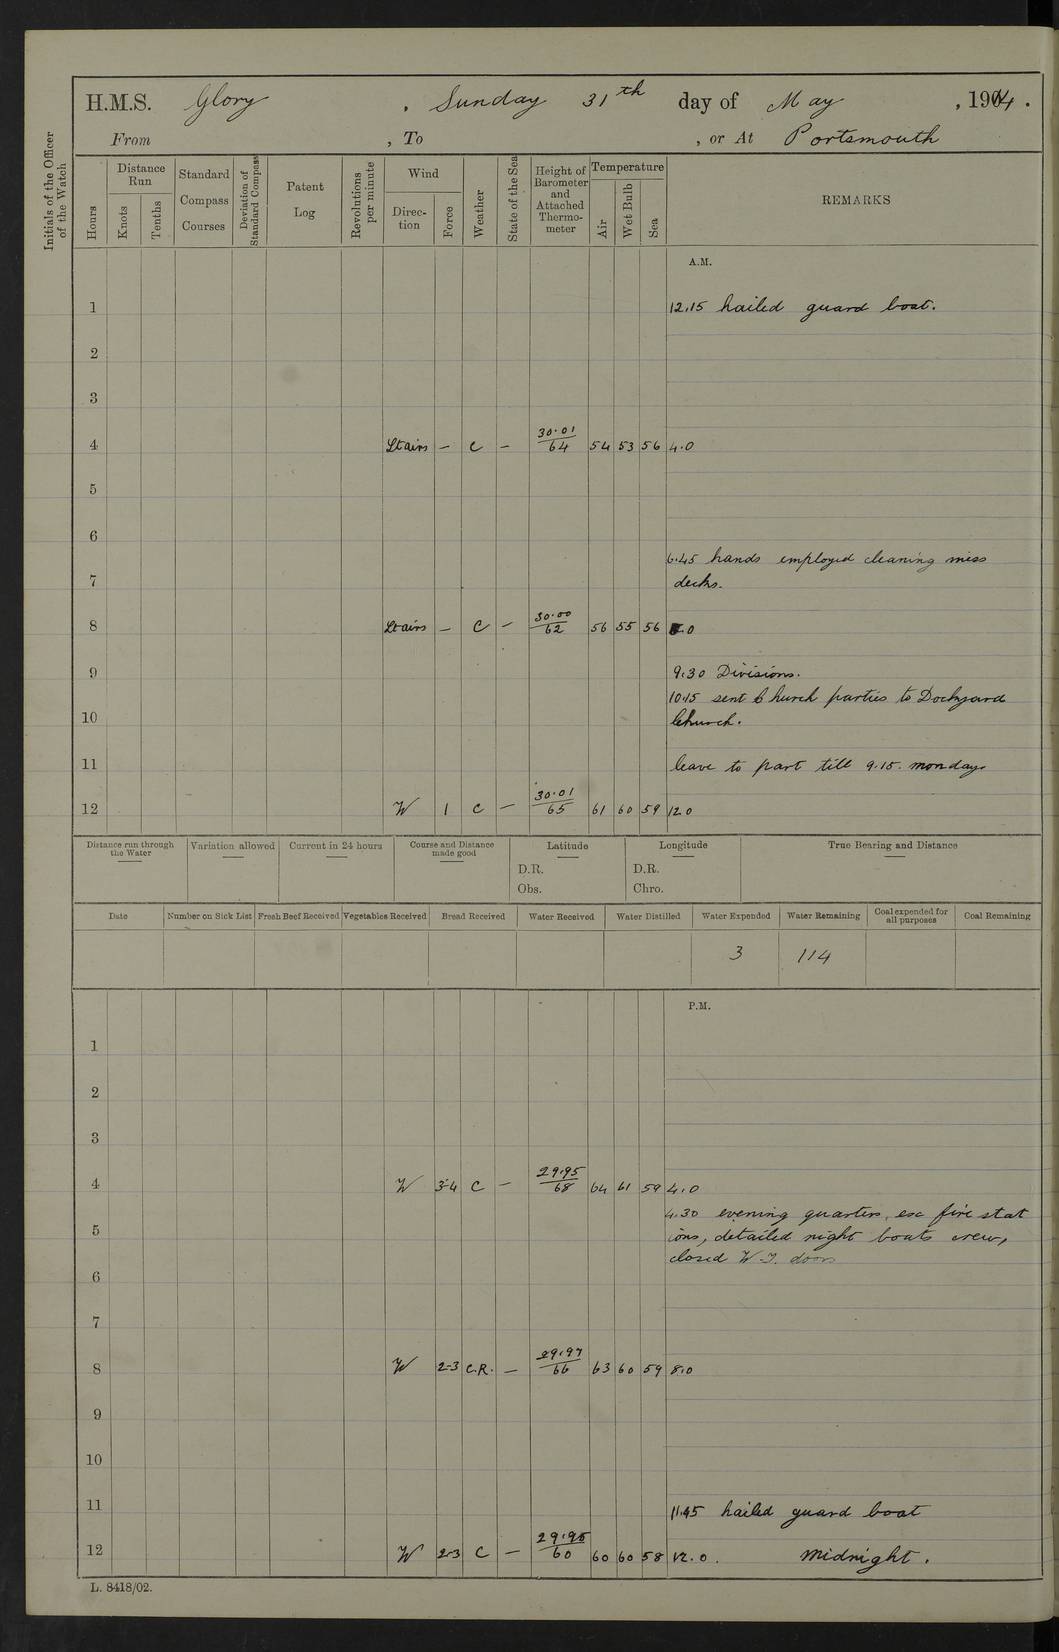 H.M.S. Glory, Sunday 31th day of May, 1914.
From , To , or At Portsmouth
Initials of the Officer of the Watch
Hours
Distance Run
Knots
Tenths
Standard Compass Courses
Deviation of Standard Compass
Patent Log
Revolutions per minute
Wind
Direc-tion
Force
Weather
State of the Sea
Height of Barometer and Attached Thermo-meter
Temperature
Air
Wet Bulb
Sea
REMARKS
A.M.
1 12.15 hailed guard boat.
2
3
4 Lt airs – C – 30.01/64 54 53 56 4.0
5
6
6.45 hands employed cleaning mess
7 decks.
8 Lt airs – C – 30.00/62 56 55 56 8.0
9 9.30 Divisions.
10.15 sent Church parties to Dockyard
10 Church.
11 leave to part till 9.15. monday
12 W 1 C – 30.01/65 61 60 59 12.0
Distance run through the Water
Variation allowed
Current in 24 hours
Course and Distance made good
Latitude
D.R.
Obs.
Longitude
D.R.
Chro.
True Bearing and Distance
Date
Number on Sick List
Fresh Beef Received
Vegetables Received
Bread Received
Water Received
Water Distilled
Water Expended
Water Remaining
Coal expended for all purposes
Coal Remaining
3 114
P.M.
1
2
3
4 W 3-4 C – 29.95/68 64 61 59 4.0
4.30 evening quarters, exc fire stat
5 ions, detailed night boats crew,
closed W.T. doors
6
7
8 W 2-3 C.R. – 29.97/66 63 60 59 8.0
9
10
11 11.45 hailed guard boat
12 W 2-3 C – 29.95/60 60 60 58 12.0. Midnight.
L. 8418/02.